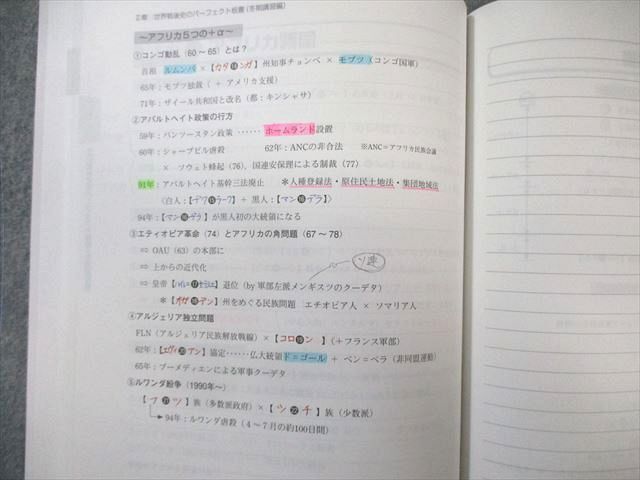 2章 世界戦後史のパーフェクト板書(冬期講習編)
〜アフリカ5つの+α〜
①コンゴ動乱(60〜65)とは?
首相 ルムンバ×【カタ⓮ンガ】州知事チョンベ × モブツ(コンゴ国軍)
65年:モブツ独裁(+アメリカ支援)
71年:ザイール共和国と改名(都:キンシャサ)
②アパルトヘイト政策の行方
59年:バンツースタン政策……ホームランド設置
60年:シャープビル虐殺 62年:ANCの非合法 ※ANC=アフリカ民族会議
× ソウェト蜂起(76)、国連安保理による制裁(77)
91年:アパルトヘイト基幹三法廃止 *人種登録法・原住民土地法・集団地域法
〈白人:【デク⓯ラーク】+ 黒人:【マン⓰デラ】〉
94年:【マン⓰デラ】が黒人初の大統領になる
③エティオピア革命(74)とアフリカの角問題(67〜78)
⇨ OAU(63)の本部に
⇨ 上からの近代化
ソ連
⇨ 皇帝【ハイレ=⓱セラシエ】退位(by 軍部左派メンギスツのクーデタ)
*【オガ⓲デン】州をめぐる民族問題 エチオピア人 × ソマリア人
④アルジェリア独立問題
FLN(アルジェリア民族解放戦線)×【コロ⓳ン】(+フランス軍部)
62年:【エヴィ⓴アン】協定……仏大統領ド=ゴール + ベン=ベラ(非同盟運動)
65年:ブーメディエンによる軍事クーデタ
⑤ルワンダ紛争(1990年〜)
【フ㉑ツ】族(多数派政府)×【ツ㉒チ】族(少数派)
94年:ルワンダ虐殺(4〜7月の約100日間)